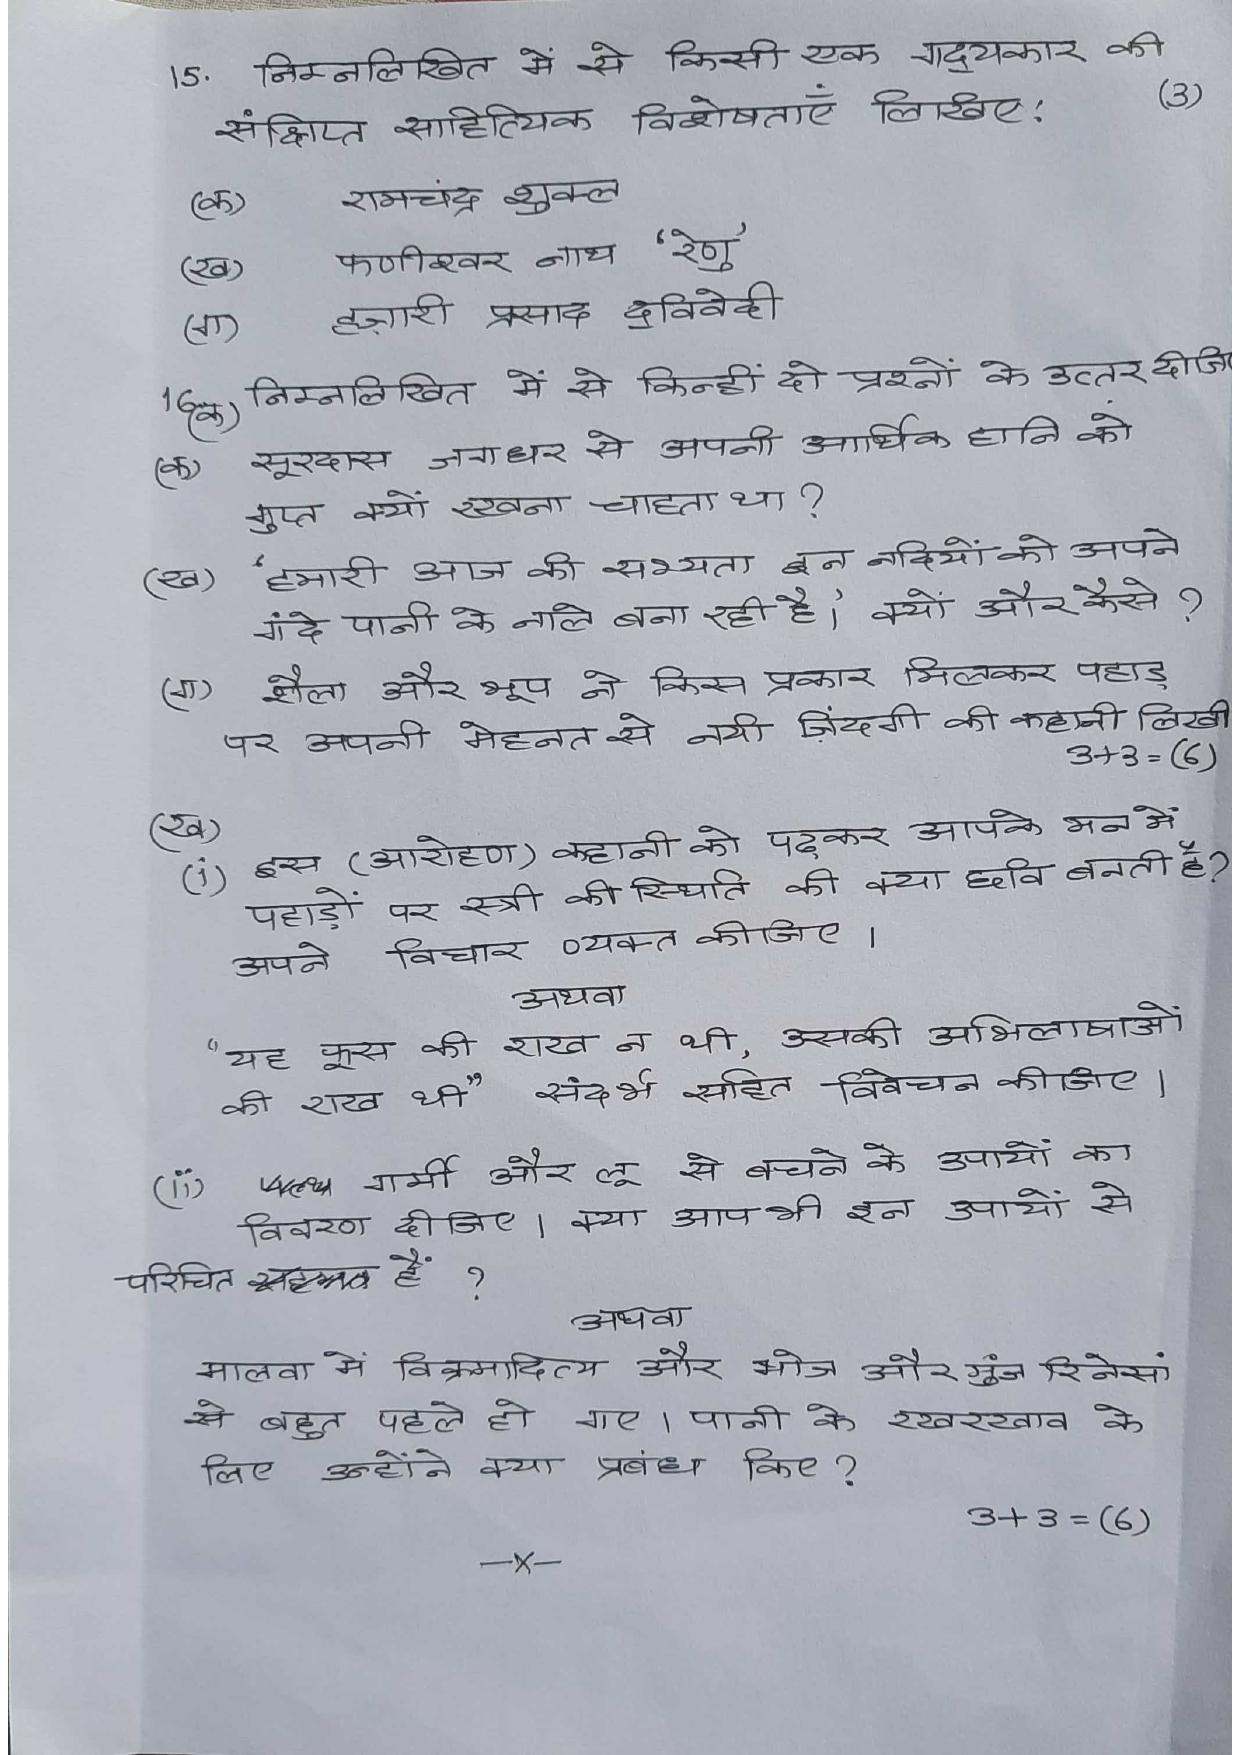 15. निम्नलिखित में से किसी एक गद्यकार की
संक्षिप्त साहित्यिक विशेषताएँ लिखिए: (3)
(क) रामचंद्र शुक्ल
(ख) फणीश्वर नाथ 'रेणु'
(ग) हज़ारी प्रसाद द्विवेदी
16(क) निम्नलिखित में से किन्हीं दो प्रश्नों के उत्तर दीजि
(क) सूरदास जगधर से अपनी आर्थिक हानि को
गुप्त क्यों रखना चाहता था ?
(ख) 'हमारी आज की सभ्यता इन नदियों को अपने
गंदे पानी के नाले बना रही है।' क्यों और कैसे ?
(ग) शैला और भूप ने किस प्रकार मिलकर पहाड़
पर अपनी मेहनत से नयी ज़िंदगी की कहानी लिखी
3+3=(6)
(ख)
(i) इस (आरोहण) कहानी को पढ़कर आपके मन में
पहाड़ों पर स्त्री की स्थिति की क्या छवि बनती है?
अपने विचार व्यक्त कीजिए ।
अथवा
"यह फूस की राख न थी, उसकी अभिलाषाओं
की राख थी" संदर्भ सहित विवेचन कीजिए ।
(ii) गर्मी और लू से बचने के उपायों का
विवरण दीजिए । क्या आप भी इन उपायों से
परिचित हैं ?
अथवा
मालवा में विक्रमादित्य और भोज और मुंज रिनेसां
से बहुत पहले हो गए । पानी के रखरखाव के
लिए उन्होंने क्या प्रबंध किए ?
3+3=(6)
—x—